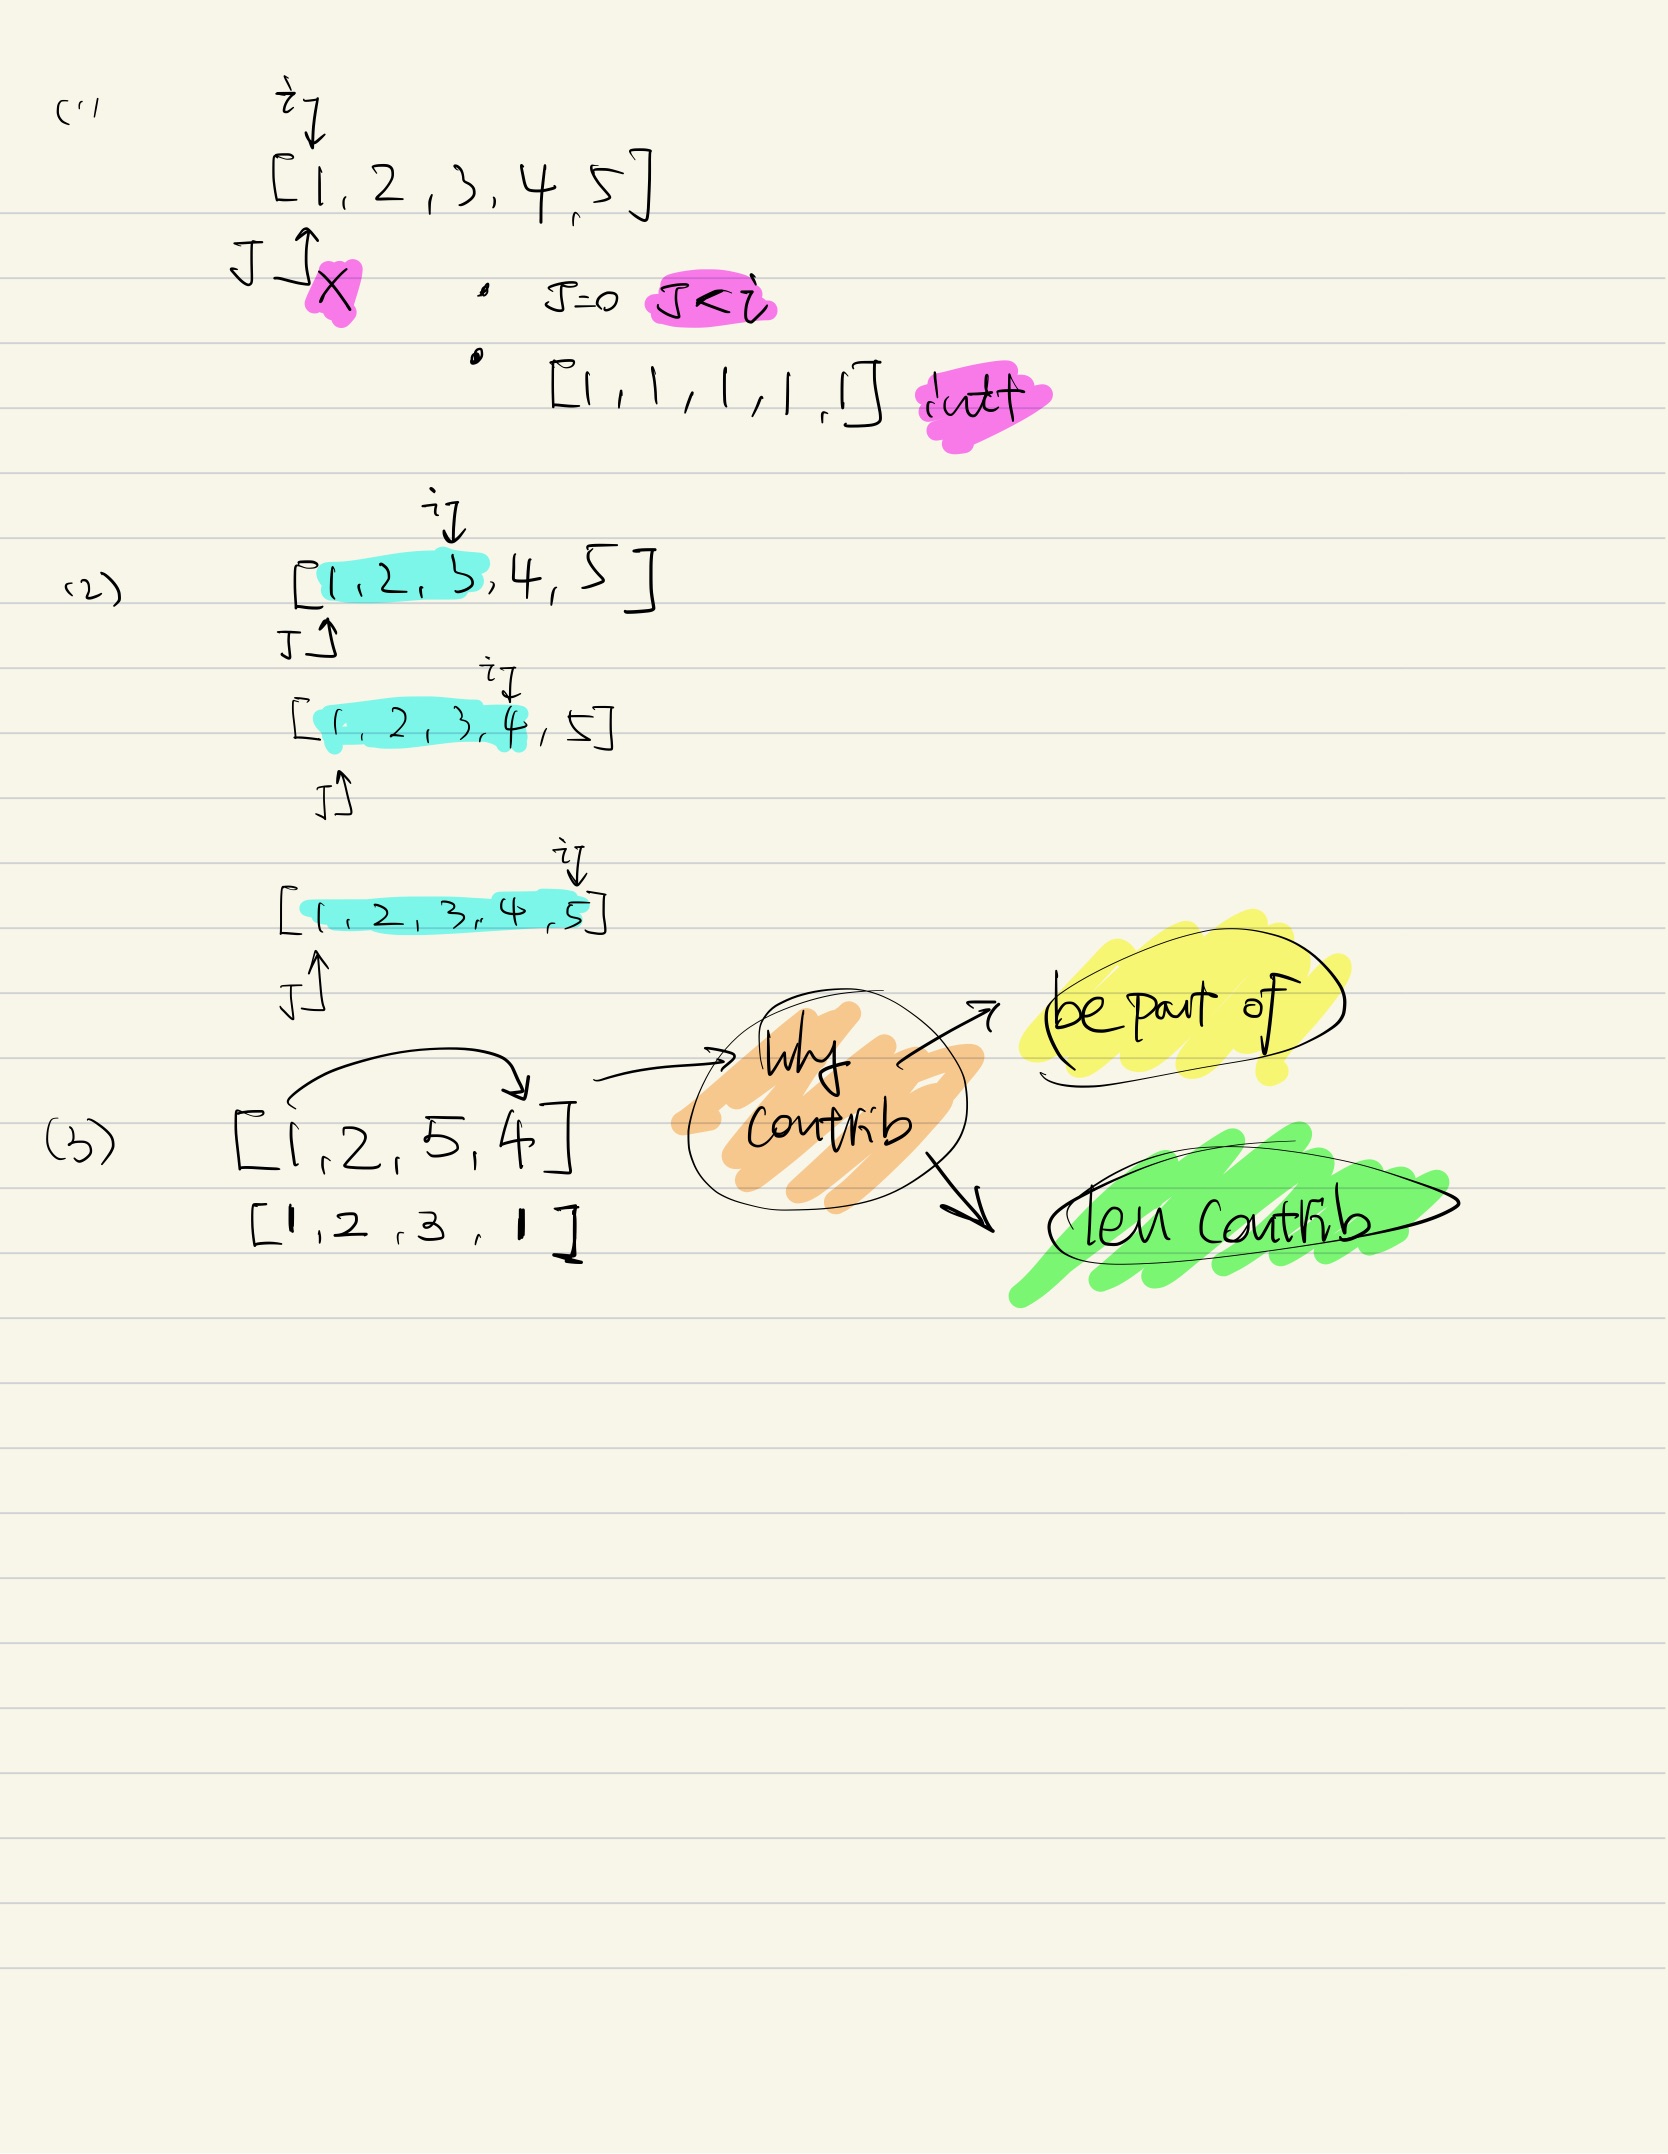 (1)
i
[1, 2, 3, 4, 5]
J X
• J=0 J<i
• [1, 1, 1, 1, 1]
i
(2) [1, 2, 3, 4, 5]
J
i
[1, 2, 3, 4, 5]
J
i
[1, 2, 3, 4, 5]
J
(3) [1, 2, 5, 4]
[1, 2, 3, 1]
Why
contrib
be part of
len contrib